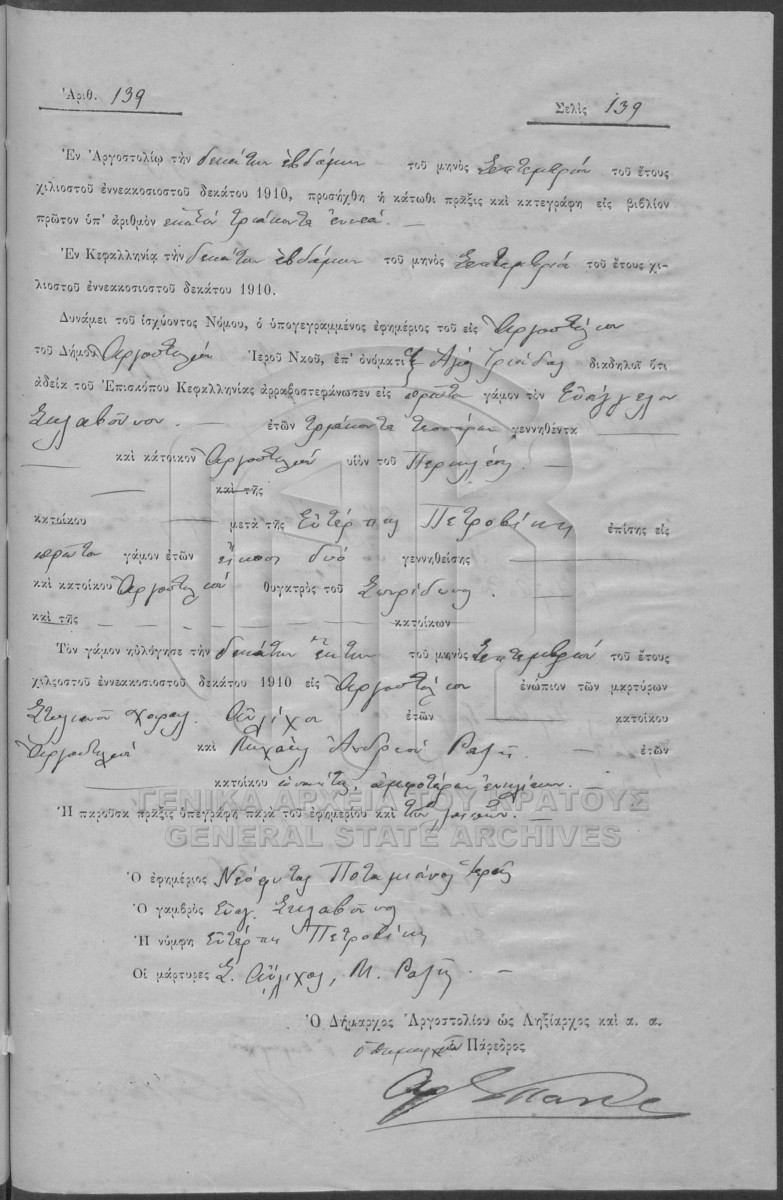 Ἀριθ. 139
Σελὶς 139
Ἐν Ἀργοστολίῳ τὴν δεκάτην ἑβδόμην τοῦ μηνὸς Σεπτεμβρίου τοῦ ἔτους
χιλιοστοῦ ἐννεακοσιοστοῦ δεκάτου 1910, προσήχθη ἡ κάτωθι πρᾶξις καὶ κατεγράφη εἰς βιβλίον
πρῶτον ὑπ' ἀριθμὸν ἑκατὸν τριάκοντα ἐννέα. —
Ἐν Κεφαλληνίᾳ τὴν δεκάτην ἑβδόμην τοῦ μηνὸς Σεπτεμβρίου τοῦ ἔτους χι-
λιοστοῦ ἐννεακοσιοστοῦ δεκάτου 1910.
Δυνάμει τοῦ ἰσχύοντος Νόμου, ὁ ὑπογεγραμμένος ἐφημέριος τοῦ εἰς Ἀργοστόλιον
τοῦ Δήμου Ἀργοστολίου Ἱεροῦ Ναοῦ, ἐπ' ὀνόματι Ἁγίας Τριάδος διαδηλοῖ ὅτι
ἀδείᾳ τοῦ Ἐπισκόπου Κεφαλληνίας ἀρραβοστεφάνωσεν εἰς πρῶτον γάμον τὸν Εὐάγγελον
Σκλαβοῦνον. — ἐτῶν τριάκοντα τεσσάρων γεννηθέντα —
— καὶ κάτοικον Ἀργοστολίου υἱὸν τοῦ Περικλέους. —
— καὶ τῆς
κατοίκου — μετὰ τῆς Εὐτέρπης Πετροβίκη ἐπίσης εἰς
πρῶτον γάμον ἐτῶν εἴκοσι δύο γεννηθείσης —
καὶ κατοίκου Ἀργοστολίου θυγατρὸς τοῦ Σπυρίδωνος. —
καὶ τῆς — — — — — κατοίκων —
Τὸν γάμον ηὐλόγησε τὴν δεκάτην ἕκτην τοῦ μηνὸς Σεπτεμβρίου τοῦ ἔτους
χιλιοστοῦ ἐννεακοσιοστοῦ δεκάτου 1910 εἰς Ἀργοστόλιον ἐνώπιον τῶν μαρτύρων
Στυλιανοῦ Αὐλίχου ἐτῶν — κατοίκου
Ἀργοστολίου καὶ Μιχαὴλ Ἀνδρέου Ραζῆ — ἐτῶν
— κατοίκου ἀμφοτέρων ἐνηλίκων. —
Ἡ παροῦσα πρᾶξις ὑπεγράφη παρὰ τοῦ ἐφημερίου καὶ τῶν λοιπῶν. —
ΓΕΝΙΚΑ ΑΡΧΕΙΑ ΤΟΥ ΚΡΑΤΟΥΣ
GENERAL STATE ARCHIVES
Ὁ ἐφημέριος Νεόφυτος Ποταμιάνος Ἱερεὺς
Ὁ γαμβρὸς Εὐάγ. Σκλαβοῦνος
Ἡ νύμφη Εὐτέρπη Πετροβίκη
Οἱ μάρτυρες Σ. Αὔλιχος, Μ. Ραζῆς. —
Ὁ Δήμαρχος Ἀργοστολίου ὡς Ληξίαρχος καὶ α. α.
Πάρεδρος